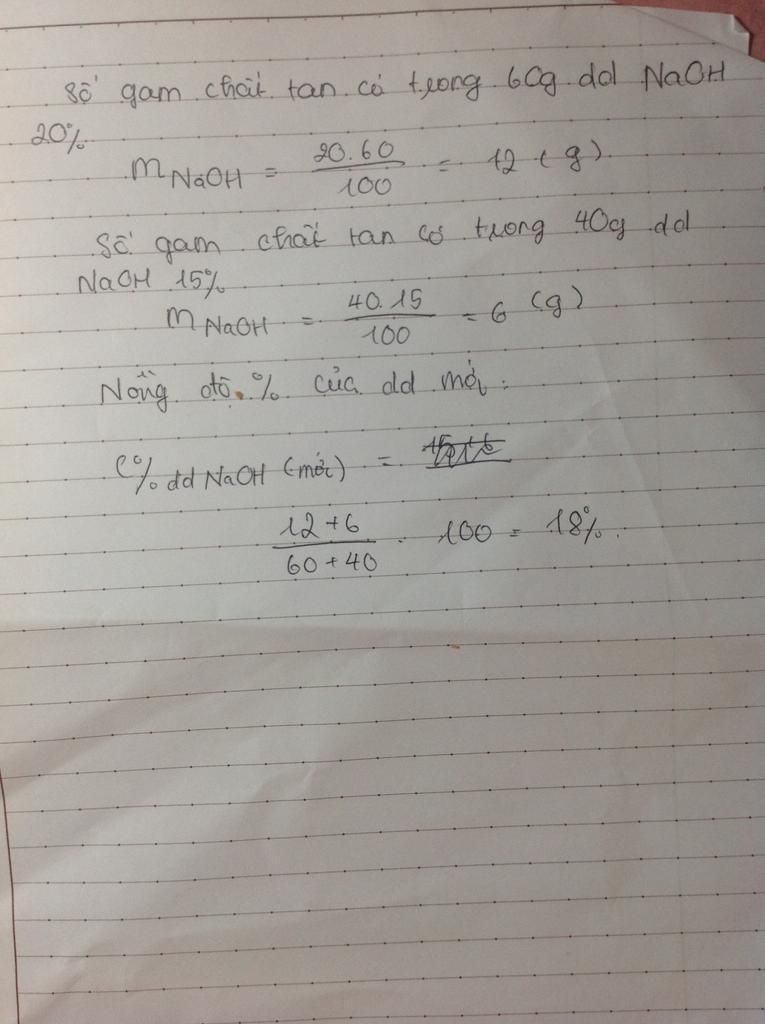 Số gam chất tan có trong 60g dd NaOH
20%
m NaOH = 20.60 / 100 = 12 (g)
Số gam chất tan có trong 40g dd
NaOH 15%
m NaOH = 40.15 / 100 = 6 (g)
Nồng độ % của dd mới:
C% dd NaOH (mới) =
12+6 / 60+40 . 100 = 18%.